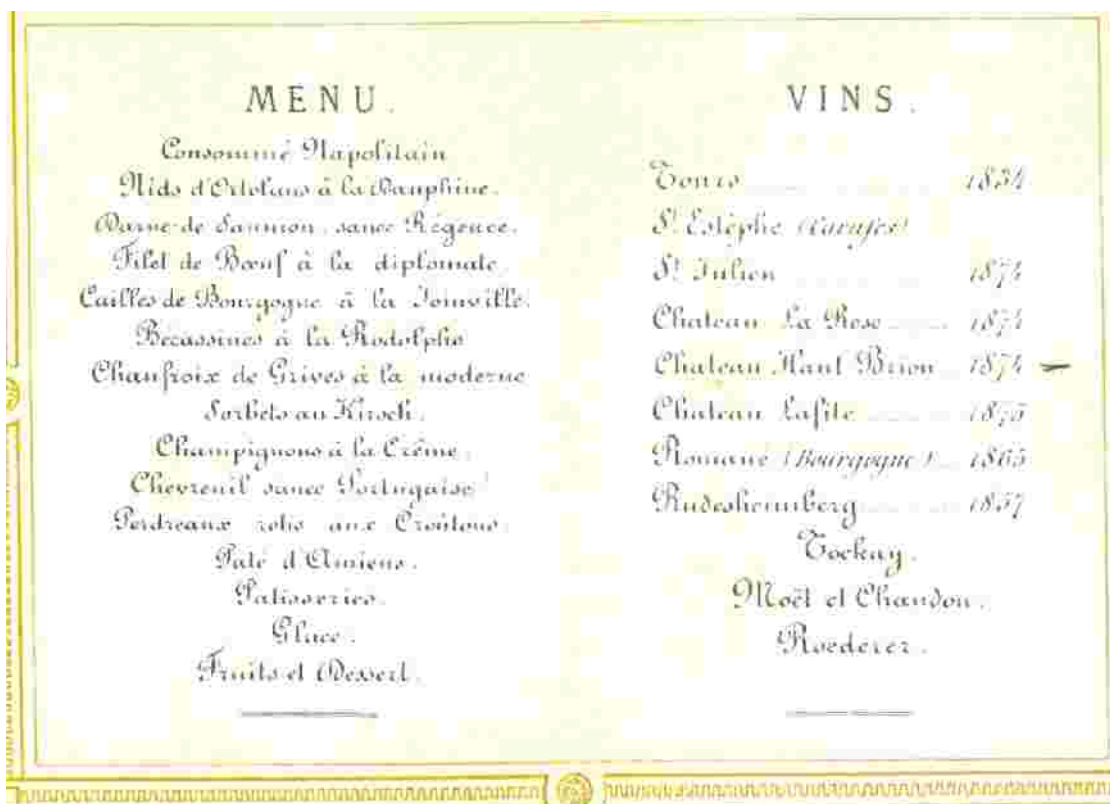 MENU.
Consommé Napolitain
Nids d'Ortolans à la Dauphine.
Darne de Saumon, sauce Régence.
Filet de Bœuf à la diplomate
Cailles de Bourgogne à la Joinville.
Bécassines à la Rodolphe
Chaufroix de Grives à la moderne
Sorbets au Kirsch.
Champignons à la Crème.
Chevreuil sauce Portugaise
Perdreaux rotis aux Croûtons.
Paté d'Amiens.
Patisseries.
Glace.
Fruits et Dessert.
VINS.
1834
St Estèphe (Carafes)
St Julien 1874
Chateau La Rose 1874
Chateau Haut Brion 1874
Chateau Lafite 1875
Romané (Bourgogne) 1865
Rudesheimberg 1857
Tockay.
Moët et Chandon.
Roederer.